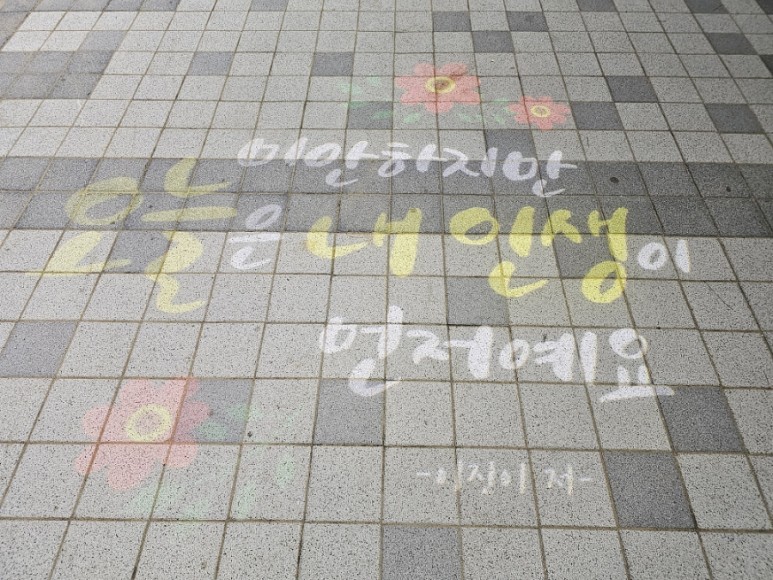 미안하지만
오늘은 내 인생이
먼저예요
-이진이 저-